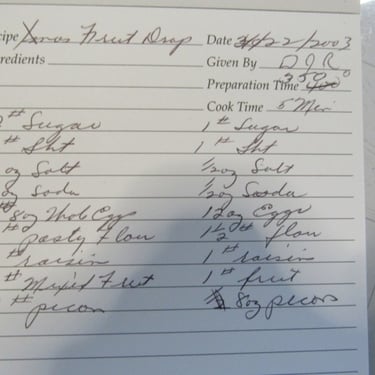 cipe Xmas Fruit Drop Date 3/22/2003
redients Given By DJR
Preparation Time 350°
Cook Time 5 Min
# Sugar 1# Sugar
# Sht 1# Sht
oz Salt 1/2oz Salt
oz Soda 1/2oz Soda
8oz Whol Egg 12oz Eggs
# pasty Flour 1 1/2# flour
# raisin 1# raisin
# Mixed Fruit 1# fruit
# pecan 8oz pecans